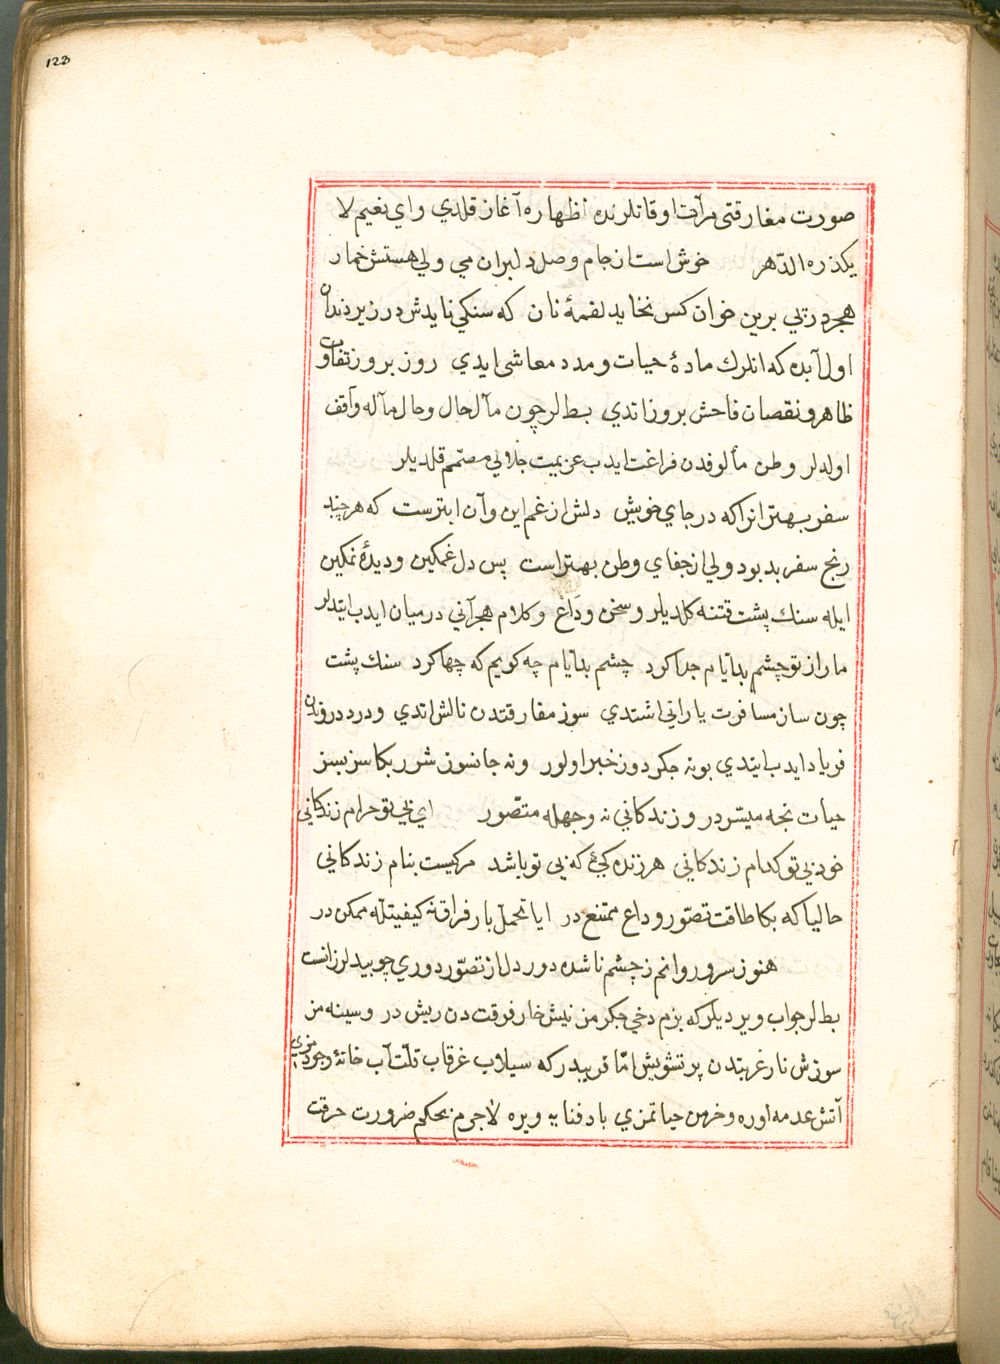 123
صورت مفارقتی مرآت اوقاتلرنده اظهاره آغاز قلدی و ای نعیم لا
یکدره الدّهر خوش است از جام وصل دلبران می ولی هستش خمار
هجر در پی برین خوان کس نخاید لقمهٔ نان که سنکی نایدش در زیر دندان
اول آبده که انلرك مادهٔ حیات و مدد معاشی ایدی روز بروز تفاوت
ظاهر و نقصان فاحش بروز اتدی بطلر چون مآل حال و حال مآله واقف
اولدلر وطن مألوفدن فراغت ایدب عزیمت جلایی مصمّم قلدیلر
سفر بهتر انرا که در جای خویش دلش از غم این و آن ابترست که هر چند
رنج سفر بد بود ولی از جفای وطن بهتر است پس دل غمکین و دیدهٔ نمکین
ایله سنك پشت قتنه کلدیلر و سخن وداع و کلام هجرانی در میان ایدب ایتدلر
ما را ز تو چشم بد ایّام جدا کرد چشم بد ایّام چه کویم که چها کرد سنك پشت
چون ساز مسافرت یارانی اشتدی سوز مفارقتدن نالش اتدی و درد دروندن
فریاد ایدب ایتدی بو نه جکر دوز خبر اولور و نه جانسوز شرر بکا سز سز
حیات نجه میسّردر و زندکانی نه وجهله متصّور ای بی تو حرام زندکانی
خود بی تو کدام زندکانی هر زنده کیٔ که بی تو باشد مرکیست بنام زندکانی
حالیا که بکا طاقت تصّور وداع ممتنع در ایا تحمل بار فراق نه کیفیتله ممکن در
هنوز سرو روانم ز چشم ناشده دور دل از تصوّر دوری چو بید لرزانست
بطلر جواب ویردیلر که بزم دخی جکرمز نیش خار فرقتدن ریش در و سینه مز
سوزش نار غربتدن پر تشویش امّا قریبدر که سیلاب غرقاب قلّت آب خانهٔ وجودمزی
آتش عدمه اوره و خرمن حیاتمزی باد فنایه ویره لاجرم بحکم ضرورت حرقت